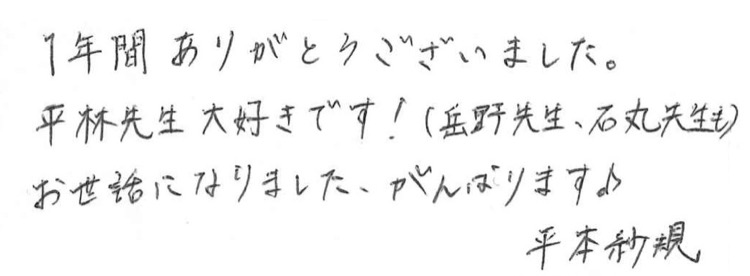 1年間 ありがとうございました。
平林先生 大好きです!(岳野先生、石丸先生も)
お世話になりました、がんばります♪
平本紗規